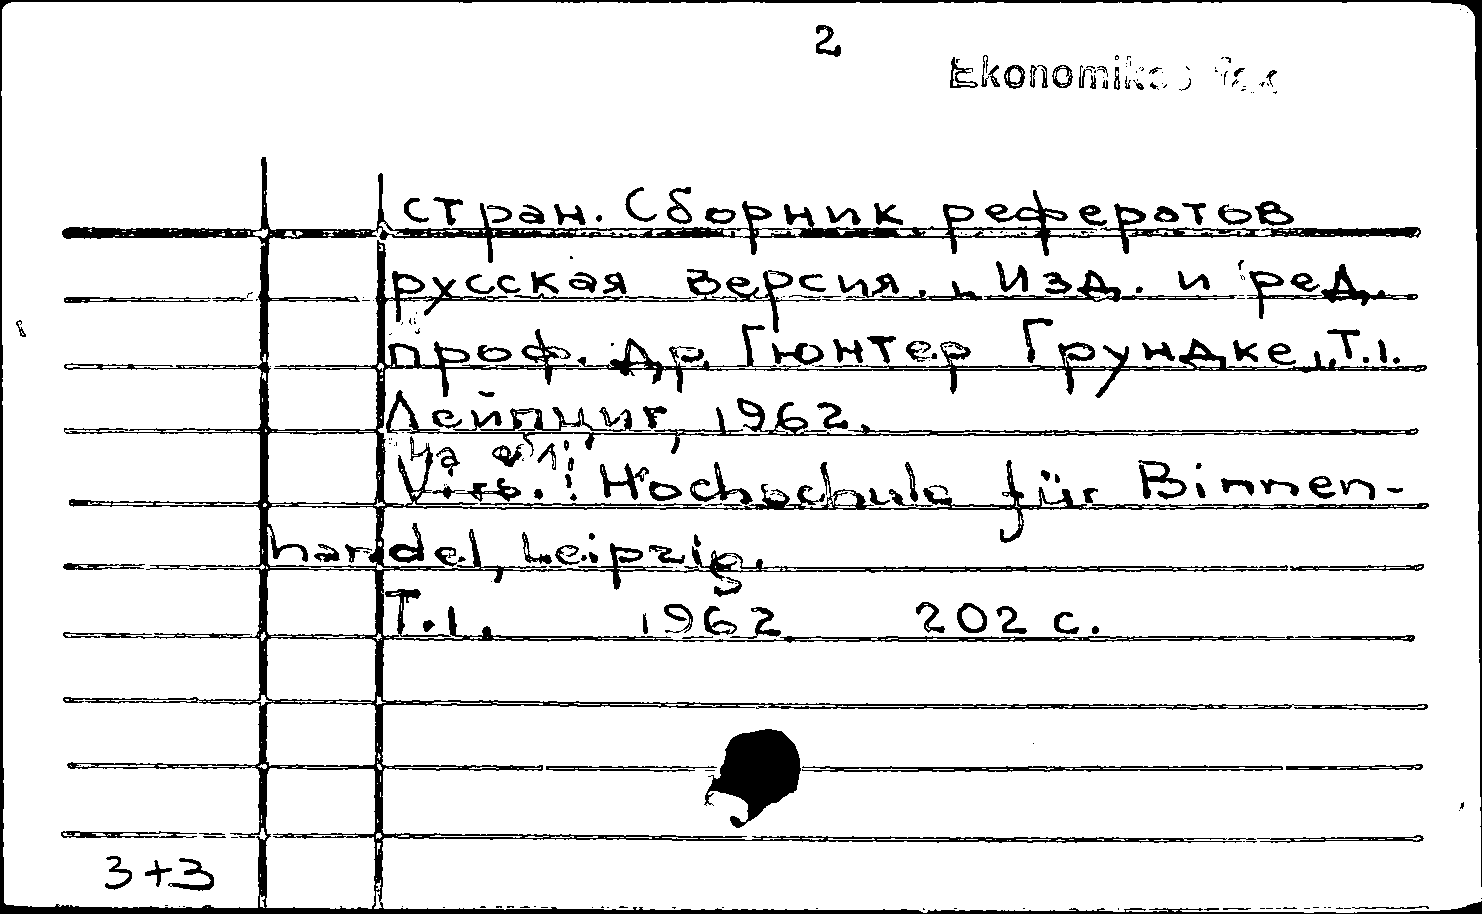 2
Ekonomikas fak
стран. Сборник рефератов
русская версия. Изд. и ред.
проф. др. Гюнтер Грундке, Т.1.
Лейпциг, 1962.
На обл.:
Hochschule für Binnen-
handel, Leipzig.
Т.1. 1962. 202 с.
3+3